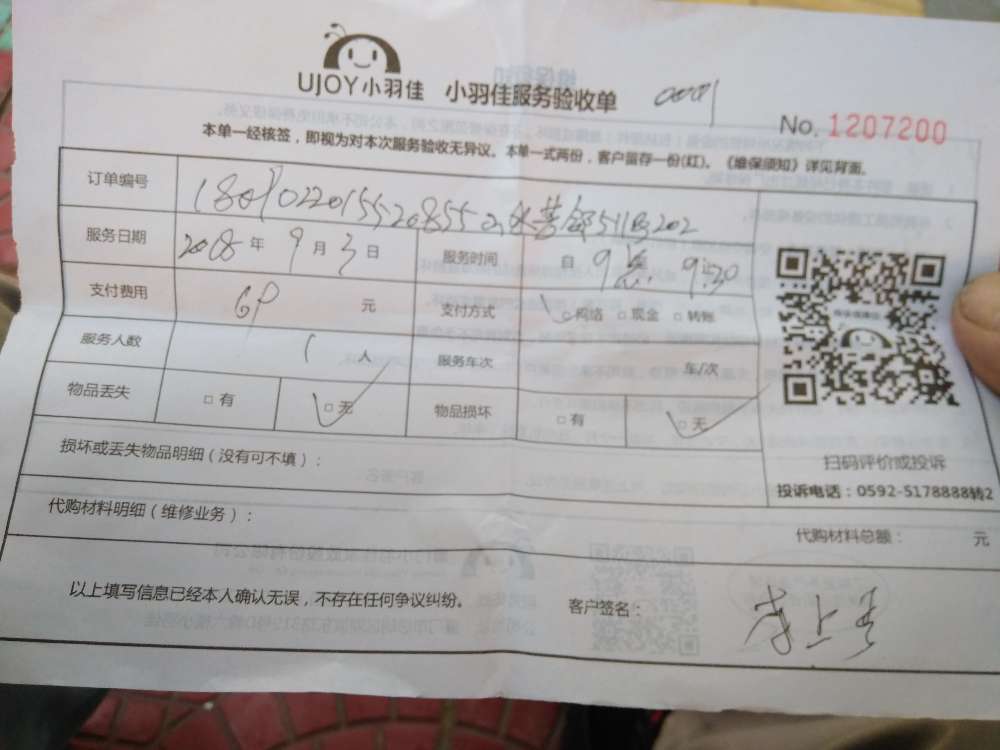 UJOY小羽佳 小羽佳服务验收单
No. 1207200
本单一经核签，即视为对本次服务验收无异议。本单一式两份，客户留存一份(红)。《维保须知》详见背面。
订单编号
服务日期 2018 年 9 月 3 日 服务时间 自 9 9:30
支付费用 元 支付方式 □ 网络 □ 现金 □ 转账
服务人数 1 人 服务车次 车/次
物品丢失 □ 有 □ 无 物品损坏 □ 有 □ 无
损坏或丢失物品明细（没有可不填）：
扫码评价或投诉
投诉电话：0592-5178888转2
代购材料明细（维修业务）：
代购材料总额： 元
以上填写信息已经本人确认无误，不存在任何争议纠纷。 客户签名：